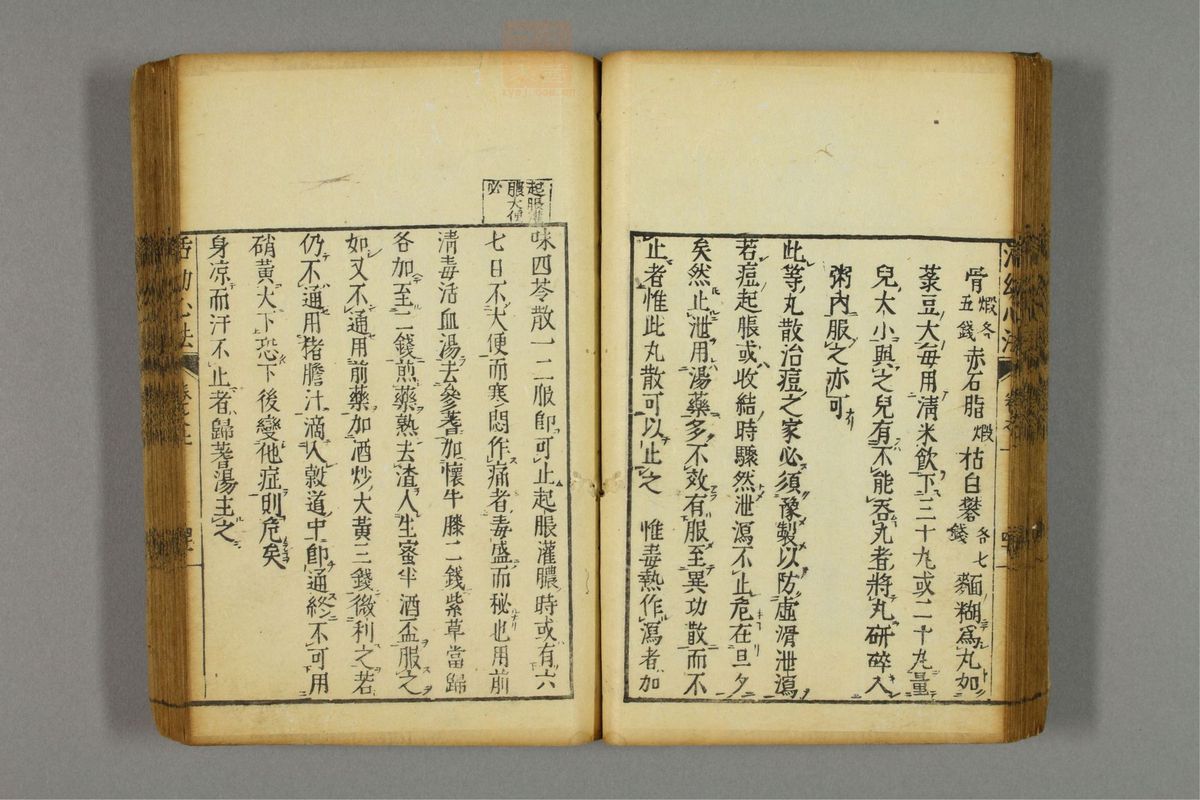 骨煅各五錢赤石脂煅枯白礬各七錢麵糊爲丸如
菉豆大每用清米飲下三十丸或二十丸量
兒大小與之兒有不能吞丸者將丸研碎入
粥內服之亦可
此等丸散治痘之家必須豫製以防虛滑泄瀉
若痘起脹或收結時驟然泄瀉不止危在旦夕
矣然止泄用湯藥多不效有服至異功散而不
止者惟此丸散可以止之 惟毒熱作瀉者加
起脹灌
膿大便
必
味四苓散一二服卽可止起脹灌膿時或有六
七日不大便而寒悶作痛者毒盛而秘也用前
淸毒活血湯去參蓍加懷牛膝二錢紫草當歸
各加至二錢煎藥熟去渣入生蜜半酒盃服之
如又不通用前藥加酒炒大黃三錢微利之若
仍不通用猪膽汁滴入穀道中卽通終不可用
硝黃大下恐下後變他症則危矣
身凉而汗不止者歸蓍湯主之
活幼心法